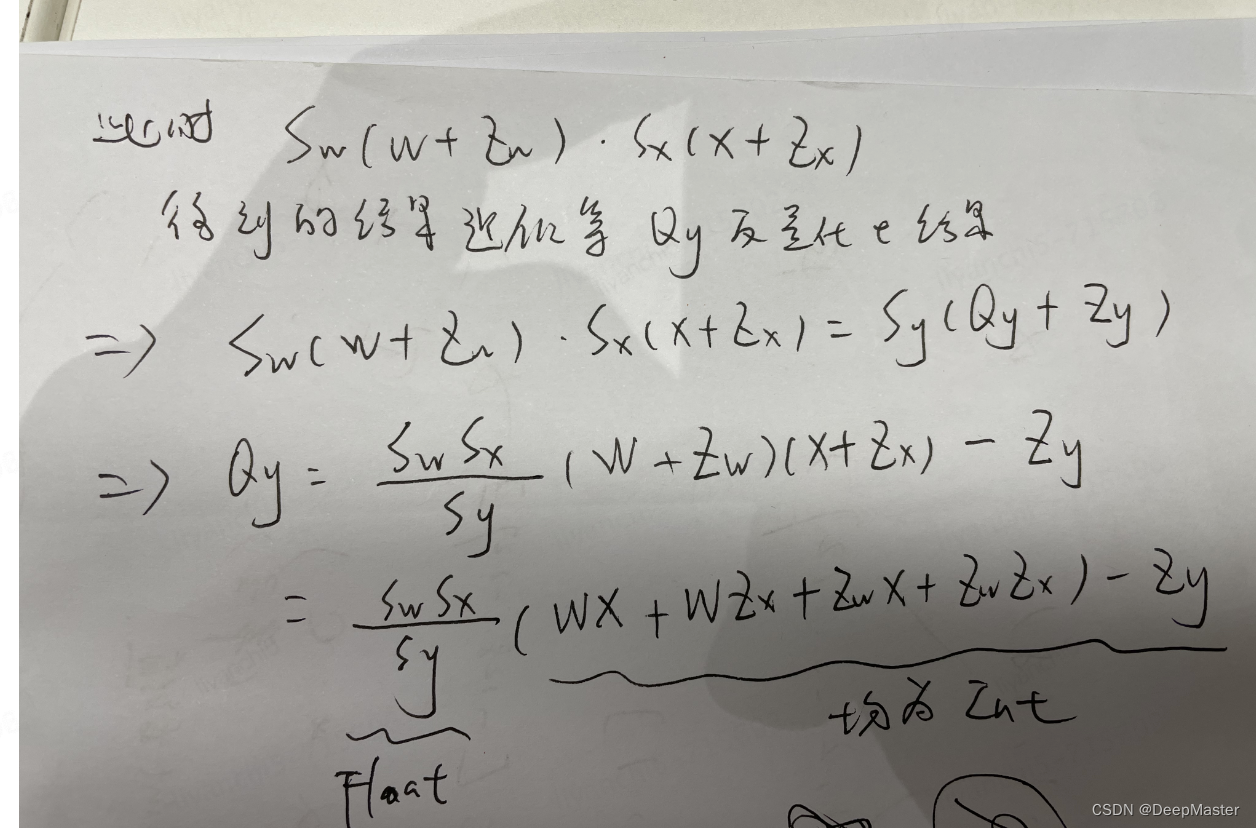 此时 Sw(W + Zw) · Sx(X + Zx)
得到的结果近似等 Qy 反量化的结果
=> Sw(W + Zw) · Sx(X + Zx) = Sy(Qy + Zy)
=> Qy = \frac{Sw Sx}{Sy} (W + Zw)(X + Zx) - Zy
= \frac{Sw Sx}{Sy} (WX + WZx + ZwX + ZwZx) - Zy
均为 Int
Float
CSDN @DeepMaster